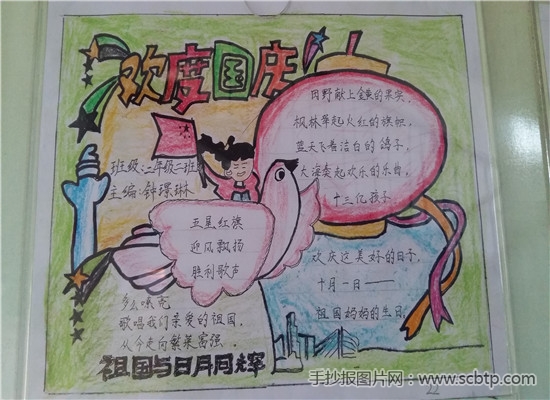 欢度国庆
班级:二年级二班
主编:钟璟琳
田野献上金黄的果实,
枫林举起火红的旗帜,
蓝天飞着洁白的鸽子,
大海奏起欢乐的乐曲,
十三亿孩子
欢庆这美好的日子,
十月一日——
祖国妈妈的生日,
五星红旗
迎风飘扬
胜利歌声
多么响亮
歌唱我们亲爱的祖国,
从今走向繁荣富强。
祖国与日月同辉
手抄报图片网:www.scbtp.com